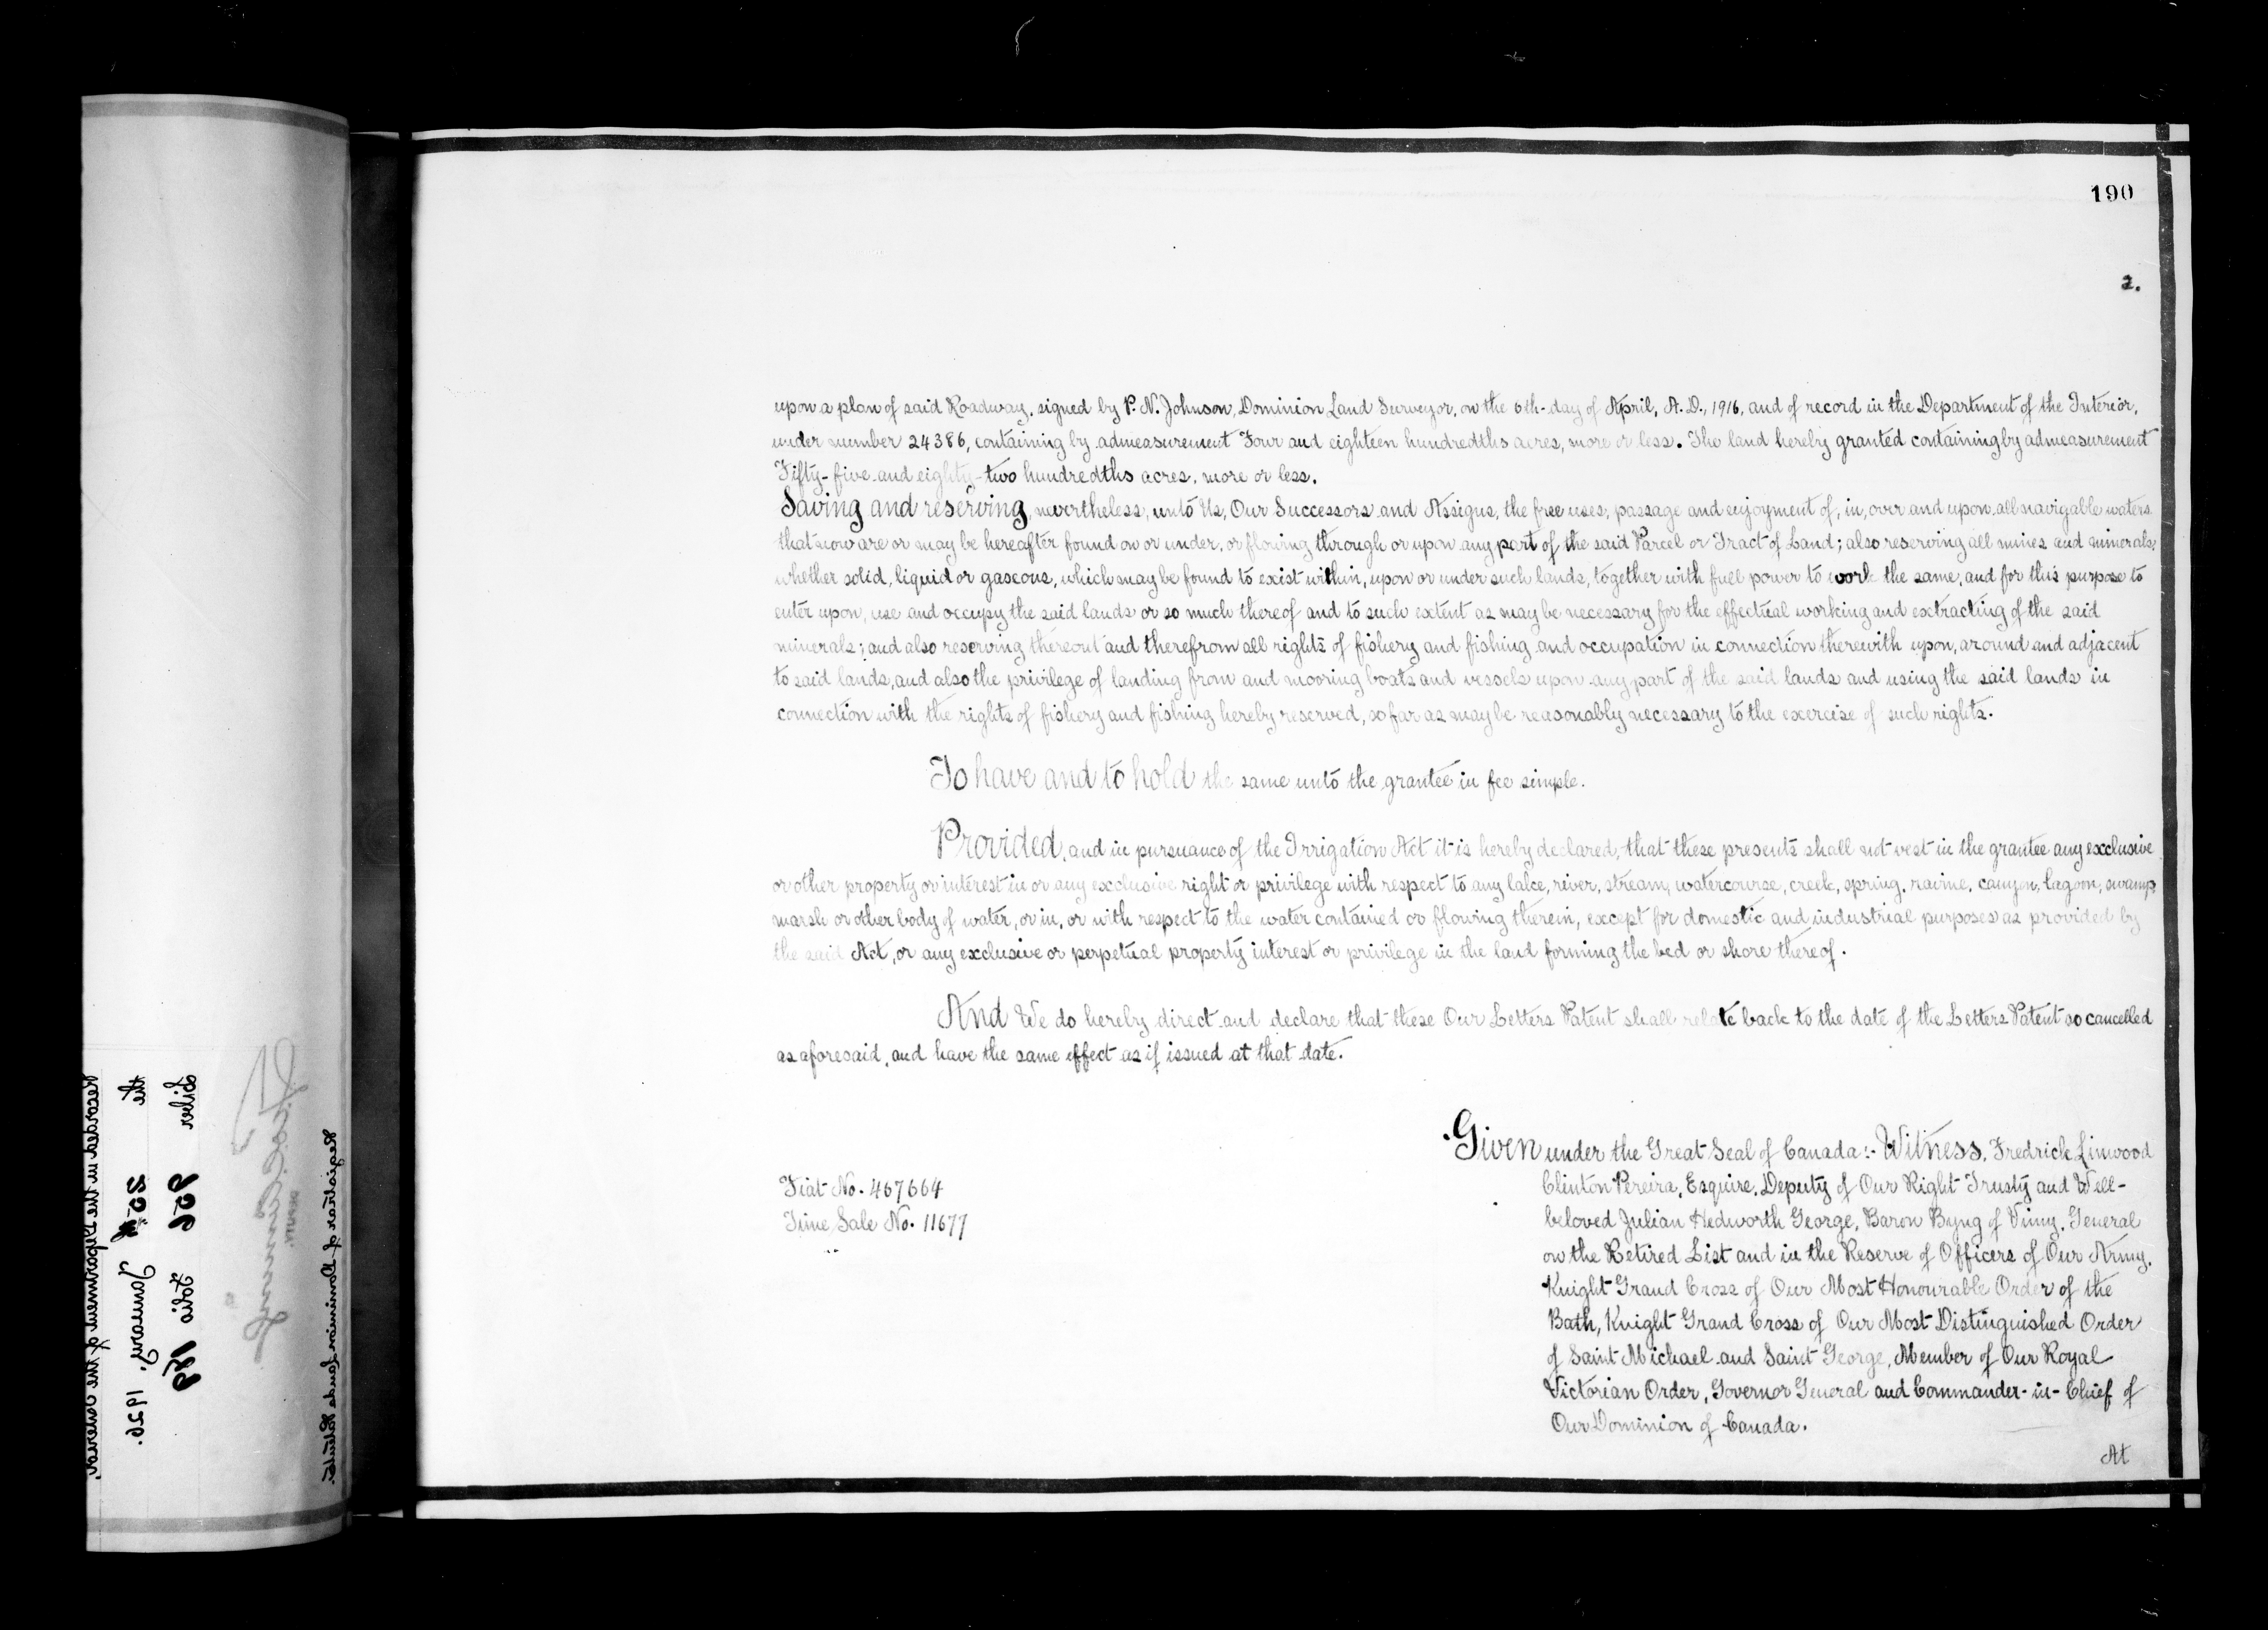 190
2.
upon a plan of said Roadway, signed by P. N. Johnson, Dominion Land Surveyor, on the 6th day of April, A. D., 1916, and of record in the Department of the Interior,
under number 24386, containing by admeasurement Four and eighteen hundredths acres, more or less. The land hereby granted containing by admeasurement
Fifty-five and eighty-two hundredths acres, more or less.
Saving and reserving, nevertheless, unto Us, Our Successors and Assigns, the free uses, passage and enjoyment of, in, over and upon all navigable waters
that now are or may be hereafter found on or under, or flowing through or upon any part of the said Parcel or Tract of Land; also reserving all mines and minerals,
whether solid, liquid or gaseous, which may be found to exist within, upon or under such lands, together with full power to work the same, and for this purpose to
enter upon, use and occupy the said lands or so much thereof and to such extent as may be necessary for the effectual working and extracting of the said
minerals; and also reserving thereout and therefrom all rights of fishery and fishing and occupation in connection therewith upon, around and adjacent
to said lands, and also the privilege of landing from and mooring boats and vessels upon any part of the said lands and using the said lands in
connection with the rights of fishery and fishing hereby reserved, so far as may be reasonably necessary to the exercise of such rights.
To have and to hold the same unto the grantee in fee simple.
Provided, and in pursuance of the Irrigation Act it is hereby declared, that these presents shall not vest in the grantee any exclusive
or other property or interest in or any exclusive right or privilege with respect to any lake, river, stream, watercourse, creek, spring, ravine, canyon, lagoon, swamp,
marsh or other body of water, or in, or with respect to the water contained or flowing therein, except for domestic and industrial purposes as provided by
the said Act, or any exclusive or perpetual property interest or privilege in the land forming the bed or shore thereof.
And We do hereby direct and declare that these Our Letters Patent shall relate back to the date of the Letters Patent so cancelled
as aforesaid, and have the same effect as if issued at that date.
Given under the Great Seal of Canada:- Witness, Fredrick Linwood
Clinton Pereira, Esquire, Deputy of Our Right Trusty and Well-
beloved Julian Hedworth George, Baron Byng of Vimy, General
on the Retired List and in the Reserve of Officers of Our Army,
Knight Grand Cross of Our Most Honourable Order of the
Bath, Knight Grand Cross of Our Most Distinguished Order
of Saint Michael and Saint George, Member of Our Royal
Victorian Order, Governor General and Commander-in-Chief of
Our Dominion of Canada.
At
Fiat No. 467664
Time Sale No. 11677
Recorded in the Department of the Interior
the 20th January, 1926.
Liber 906 Folio 189
DEPUTY
Registrar of Dominion Lands Patents.